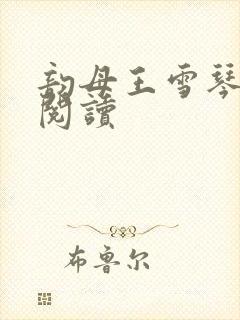 韵母王雪琴
閱讀
布鲁尔